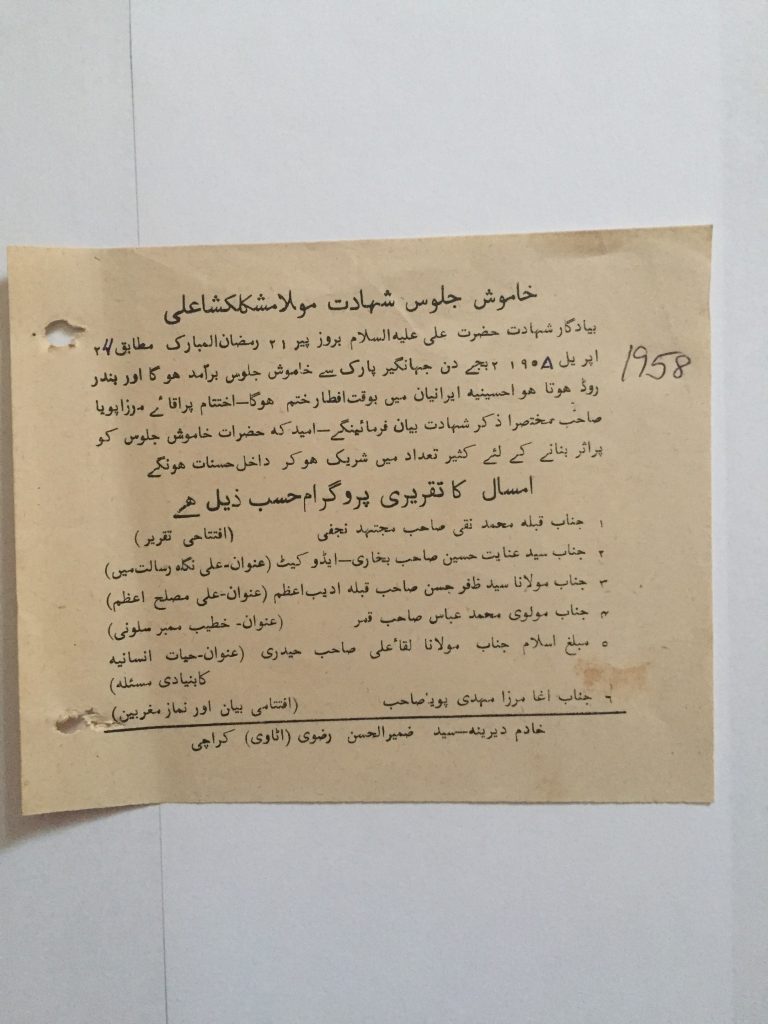 خاموش جلوس شہادت مولا مشکلکشا علی
بیادگار شہادت حضرت علی علیہ السلام بروز پیر ۲۱ رمضان المبارک مطابق ۲۴
اپریل ۱۹۵۸ ۲ بجے دن جہانگیر پارک سے خاموش جلوس برآمد ہوگا اور بندر
روڈ ہوتا ہو احسینیہ ایرانیان میں بوقت افطار ختم ہوگا—اختتام پر اقائے مرزا پویا
صاحب مختصرا ذکر شہادت بیان فرمائینگے—امید کہ حضرات خاموش جلوس کو
پراثر بنانے کے لئے کثیر تعداد میں شریک ہو کر داخل حسنات ہونگے
امسال کا تقریری پروگرام حسب ذیل ہے
۱ جناب قبلہ محمد نقی صاحب مجتہد نجفی (افتتاحی تقریر)
۲ جناب سید عنایت حسین صاحب بخاری—ایڈوکیٹ (عنوان-علی نگاہ رسالت میں)
۳ جناب مولانا سید ظفر حسن صاحب قبلہ ادیب اعظم (عنوان-علی مصلح اعظم)
۴ جناب مولوی محمد عباس صاحب قمر (عنوان- خطیب ممبر سلونی)
۵ مبلغ اسلام جناب مولانا لقاءعلی صاحب حیدری (عنوان-حیات انسانیہ
کا بنیادی مسئلہ)
۶ جناب اغا مرزا مہدی پویا صاحب (افتتامی بیان اور نماز مغربین)
خادم دیرینہ—سید ضمیر الحسن رضوی (اٹاوی) کراچی
1958